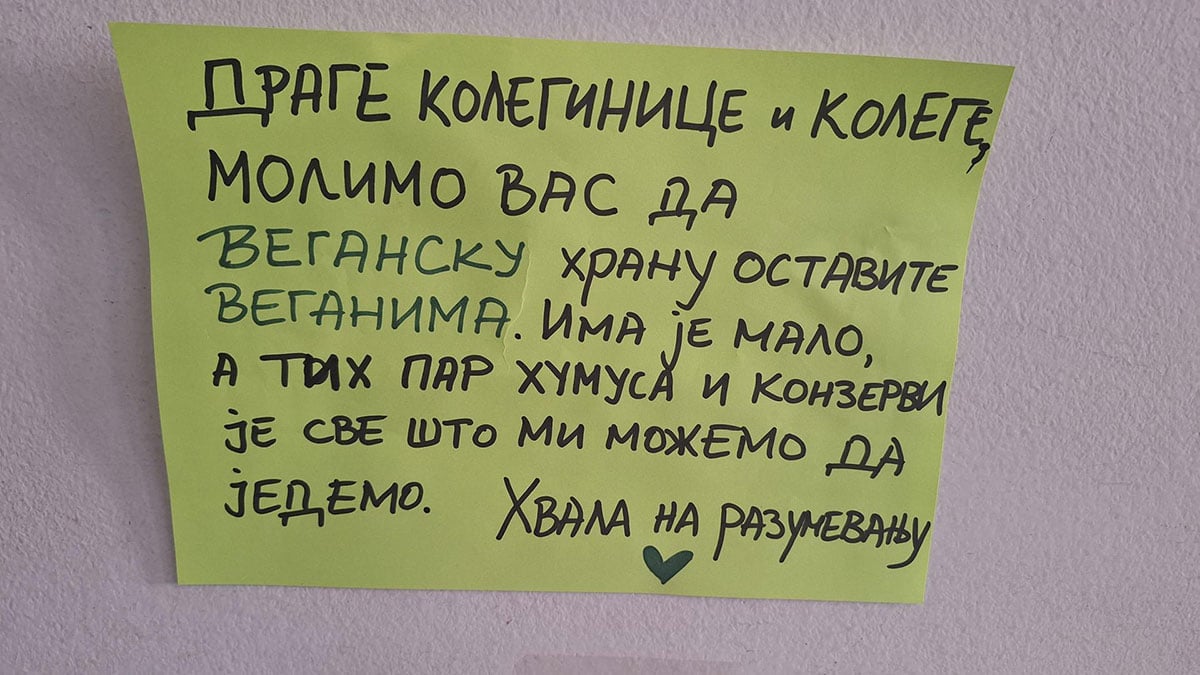 ДРАГЕ КОЛЕГИНИЦЕ и КОЛЕГЕ,
МОЛИМО ВАС ДА
ВЕГАНСКУ ХРАНУ ОСТАВИТЕ
ВЕГАНИМА. ИМА ЈЕ МАЛО,
А ТИХ ПАР ХУМУСА И КОНЗЕРВИ
ЈЕ СВЕ ШТО МИ МОЖЕМО ДА
ЈЕДЕМО. ХВАЛА НА РАЗУМЕВАЊУ